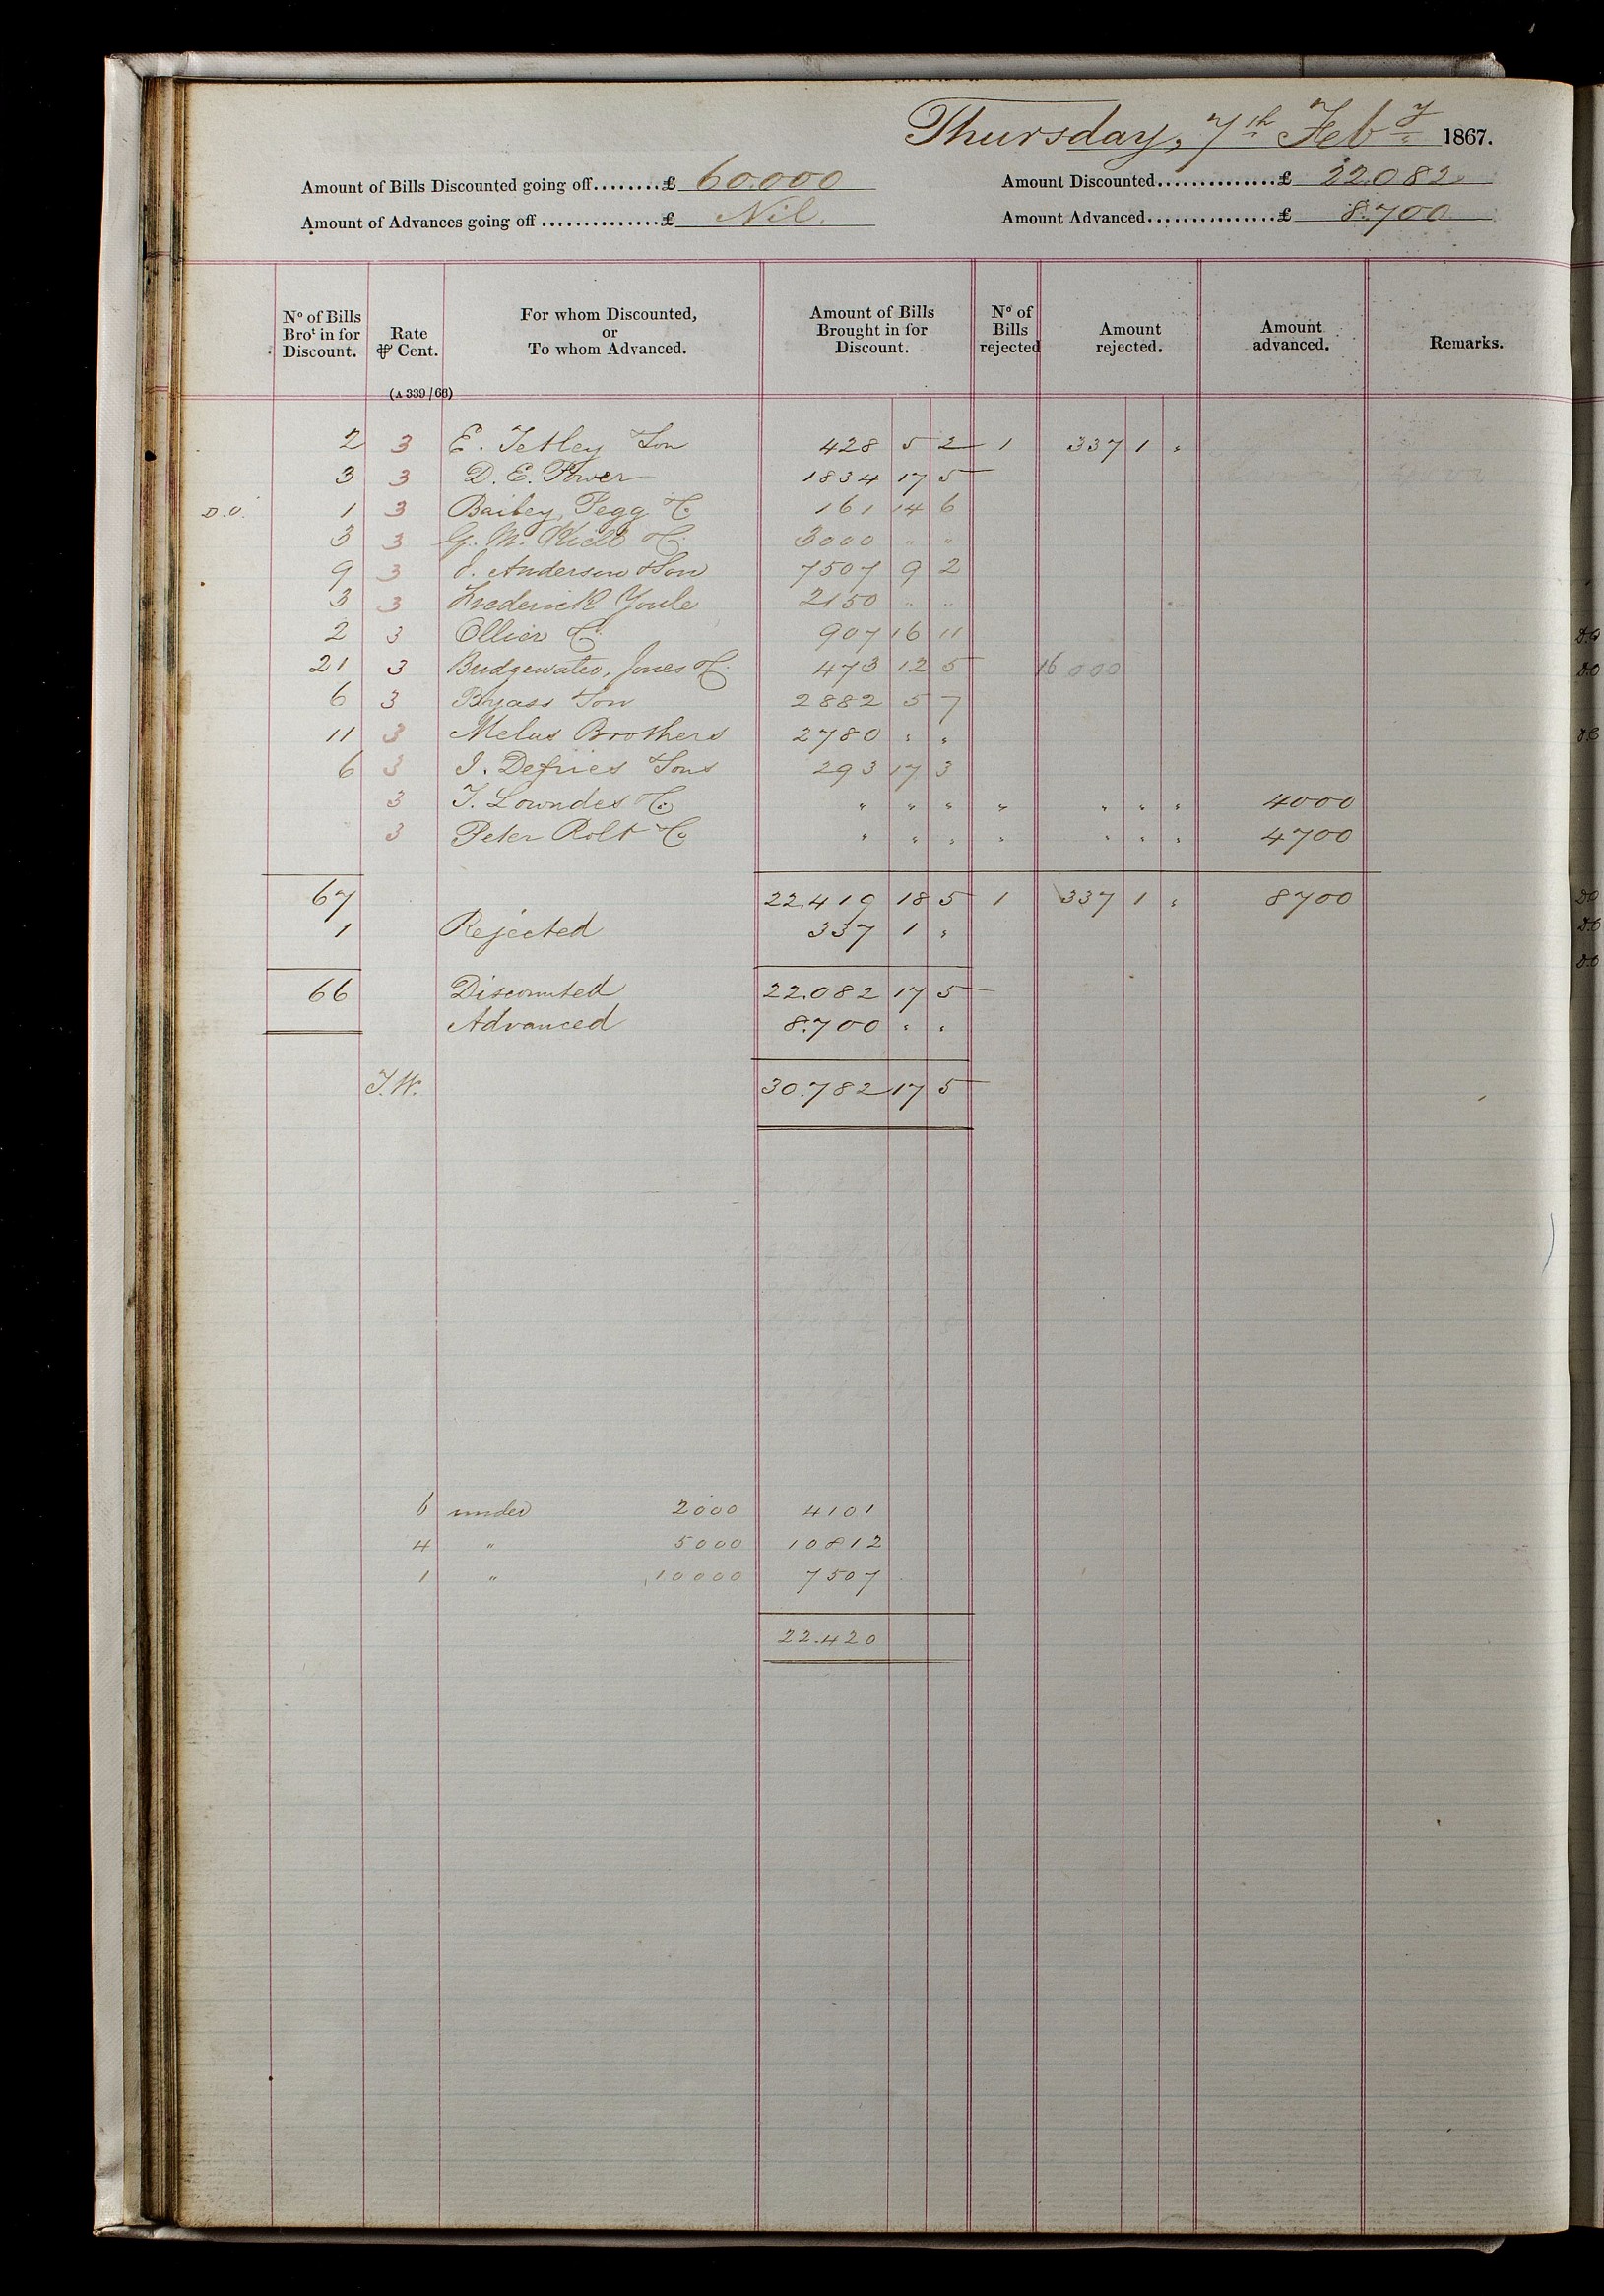 Thursday, 7th Feby 1867.
Amount of Bills Discounted going off........£ 60.000 Amount Discounted..............£ 22.082
Amount of Advances going off..............£ Nil. Amount Advanced...............£ 8.700
No of Bills Brot in for Discount. Rate ⅌ Cent. For whom Discounted, or To whom Advanced. Amount of Bills Brought in for Discount. No of Bills rejected Amount rejected. Amount advanced. Remarks.
(A 339/66)
2 3 E. Tetley & Son 428 5 2 1 337 1 "
3 3 D. E. Power 1834 17 5
D.O. 1 3 Bailey, Pegg & Co 161 14 6
3 3 G. M. & Co. 3000 " "
9 3 J. Anderson & Son 7507 9 2
3 3 Frederick Youle 2150 " "
2 3 Ollier & Co. 907 16 11
21 3 Bridgewater, Jones & Co. 473 12 5 16000
6 3 Byass & Son 2882 5 7
11 3 Melas Brothers 2780 " "
6 3 J. Defries & Sons 293 17 3
3 T. Lowndes & Co. " " " " " " " 4000
3 Peter Rolt & Co " " " " " " " 4700
67 22.419 18 5 1 337 1 " 8700
1 Rejected 337 1 "
66 Discounted 22.082 17 5
Advanced 8.700 " "
J.W. 30.782 17 5
6 under 2000 4101
4 " 5000 10812
1 " 10000 7507
22.420